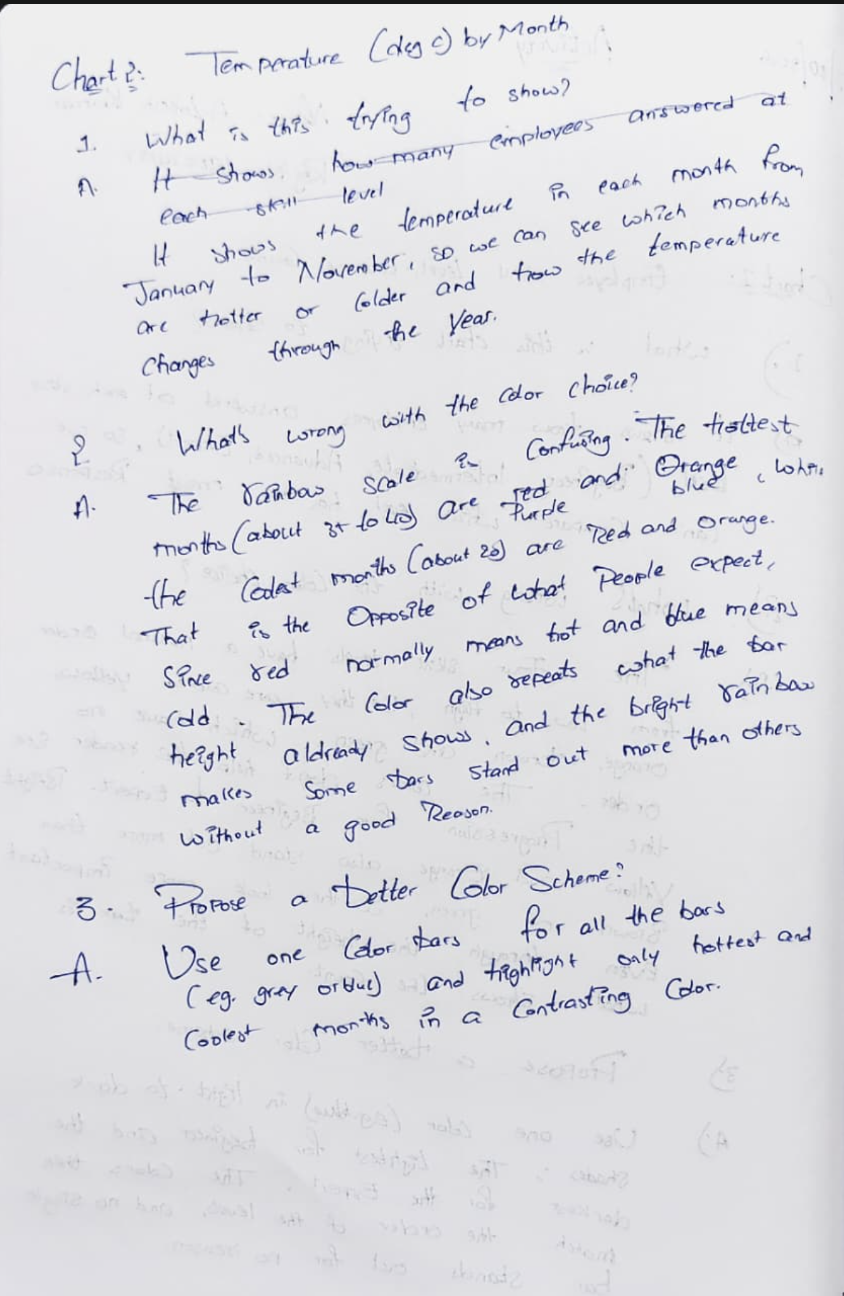 Chart 2: Temperature (deg c) by Month
1. What is this trying to show?
A. It shows how many employees answered at
each skill level
It shows the temperature in each month from
January to November, so we can see which months
are hotter or colder and how the temperature
changes through the year.
2 What's wrong with the color choice?
A. The rainbow scale is confusing. The hottest
months (about to 40) are red and Orange
Purple blue, while
the coolest months (about 20) are Red and orange.
That is the Opposite of what People expect,
since red normally means hot and blue means
cold. The color also repeats what the bar
height aldready shows, and the bright rainbow
makes some bars stand out more than others
without a good Reason.
3. Propose a better Color Scheme?
A. Use one Color bars for all the bars
(eg. grey or blue) and highlight only hottest and
Coolest months in a Contrasting Color.